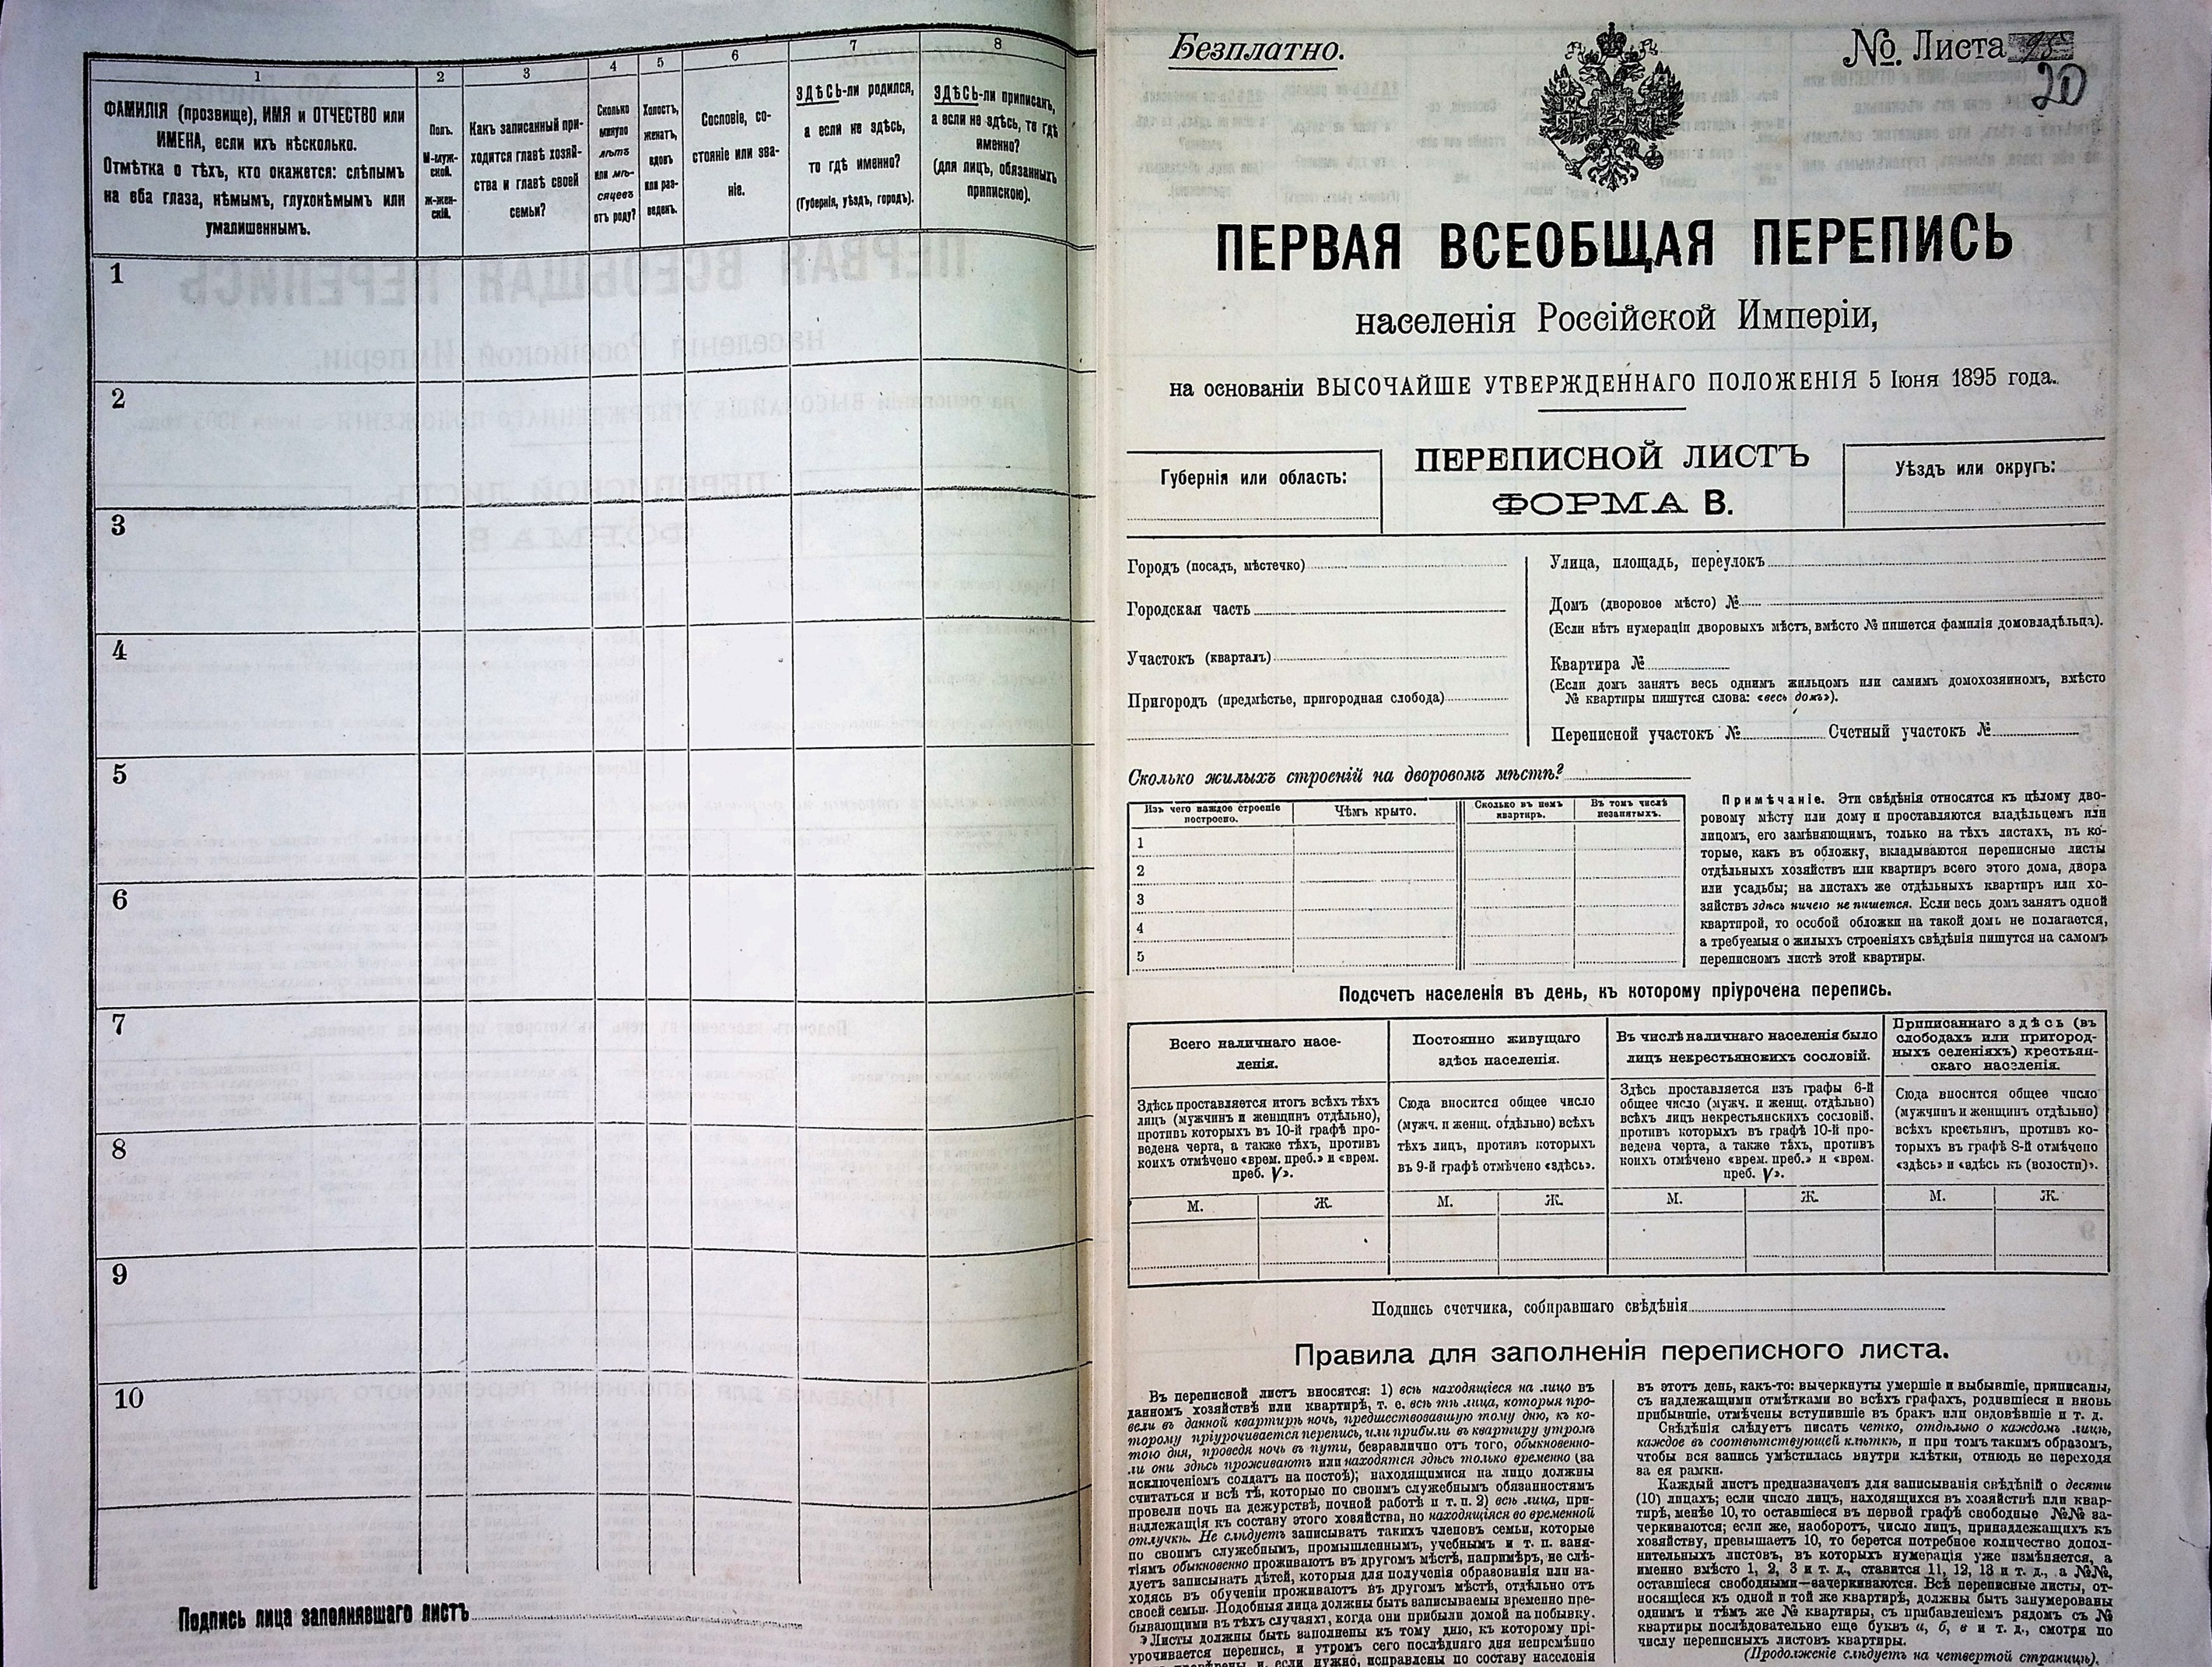 1
2
3
4
5
6
7
8
ФАМИЛІЯ (прозвище), ИМЯ и ОТЧЕСТВО или
ИМЕНА, если ихъ нѣсколько.
Отмѣтка о тѣхъ, кто окажется: слѣпымъ
на оба глаза, нѣмымъ, глухонѣмымъ или
умалишеннымъ.
Полъ.
М-муж-
ской.
Ж-жен-
скій.
Какъ записанный при-
ходится главѣ хозяй-
ства и главѣ своей
семьи?
Сколько
минуло
лѣтъ
или мѣ-
сяцевъ
отъ роду?
Холостъ,
женатъ,
вдовъ
или раз-
веденъ.
Сословіе, со-
стояніе или зва-
ніе.
ЗДѢСЬ-ли родился,
а если не здѣсь,
то гдѣ именно?
(Губернія, уѣздъ, городъ).
ЗДѢСЬ-ли приписанъ,
а если не здѣсь, то гдѣ
именно?
(для лицъ, обязанныхъ
припискою).
1
2
3
4
5
6
7
8
9
10
Подпись лица заполнявшаго листъ
Безплатно.
№. Листа 95
20
ПЕРВАЯ ВСЕОБЩАЯ ПЕРЕПИСЬ
населенія Россійской Имперіи,
на основаніи ВЫСОЧАЙШЕ УТВЕРЖДЕННАГО ПОЛОЖЕНІЯ 5 Іюня 1895 года.
Губернія или область:
ПЕРЕПИСНОЙ ЛИСТЪ
ФОРМА В.
Уѣздъ или округъ:
Городъ (посадъ, мѣстечко)
Городская часть
Участокъ (кварталъ)
Пригородъ (предмѣстье, пригородная слобода)
Улица, площадь, переулокъ
Домъ (дворовое мѣсто) №
(Если нѣтъ нумераціи дворовыхъ мѣстъ, вмѣсто № пишется фамилія домовладѣльца).
Квартира №
(Если домъ занятъ весь однимъ жильцомъ или самимъ домохозяиномъ, вмѣсто
№ квартиры пишутся слова: «весь домъ»).
Переписной участокъ № Счетный участокъ №
Сколько жилыхъ строеній на дворовомъ мѣстѣ?
Изъ чего каждое строеніе
построено.
Чѣмъ крыто.
Сколько въ немъ
квартиръ.
Въ томъ числѣ
незанятыхъ.
1
2
3
4
5
Примѣчаніе. Эти свѣдѣнія относятся къ цѣлому дво-
ровому мѣсту или дому и проставляются владѣльцемъ или
лицомъ, его замѣняющимъ, только на тѣхъ листахъ, въ ко-
торые, какъ въ обложку, вкладываются переписные листы
отдѣльныхъ хозяйствъ или квартиръ всего этого дома, двора
или усадьбы; на листахъ же отдѣльныхъ квартиръ или хо-
зяйствъ здѣсь ничего не пишется. Если весь домъ занятъ одной
квартирой, то особой обложки на такой домъ не полагается,
а требуемыя о жилыхъ строеніяхъ свѣдѣнія пишутся на самомъ
переписномъ листѣ этой квартиры.
Подсчетъ населенія въ день, къ которому пріурочена перепись.
Всего наличнаго насе-
ленія.
Постоянно живущаго
здѣсь населенія.
Въ числѣ наличнаго населенія было
лицъ некрестьянскихъ сословій.
Приписаннаго здѣсь (въ
слободахъ или пригород-
ныхъ селеніяхъ) крестьян-
скаго населенія.
Здѣсь проставляется итогъ всѣхъ тѣхъ
лицъ (мужчинъ и женщинъ отдѣльно),
противъ которыхъ въ 10-й графѣ про-
ведена черта, а также тѣхъ, противъ
коихъ отмѣчено «врем. преб.» и «врем.
преб. V».
Сюда вносится общее число
(мужч. и женщ. отдѣльно) всѣхъ
тѣхъ лицъ, противъ которыхъ
въ 9-й графѣ отмѣчено «здѣсь».
Здѣсь проставляется изъ графы 6-й
общее число (мужч. и женщ. отдѣльно)
всѣхъ лицъ некрестьянскихъ сословій.
противъ которыхъ въ графѣ 10-й про-
ведена черта, а также тѣхъ, противъ
коихъ отмѣчено «врем. преб.» и «врем.
преб. V».
Сюда вносится общее число
(мужчинъ и женщинъ отдѣльно)
всѣхъ крестьянъ, противъ ко-
торыхъ въ графѣ 8-й отмѣчено
«здѣсь» и «здѣсь къ (волости)».
М. Ж. М. Ж. М. Ж. М. Ж.
Подпись счетчика, собиравшаго свѣдѣнія
Правила для заполненія переписного листа.
Въ переписной листъ вносятся: 1) всѣ находящіеся на лицо въ
данномъ хозяйствѣ или квартирѣ, т. е. всѣ тѣ лица, которыя про-
вели въ данной квартирѣ ночь, предшествовавшую тому дню, къ ко-
торому пріурочивается перепись, или прибыли въ квартиру утромъ
того дня, проведя ночь въ пути, безразлично отъ того, обыкновенно-
ли они здѣсь проживаютъ или находятся здѣсь только временно (за
исключеніемъ солдатъ на постоѣ); находящимися на лицо должны
считаться и всѣ тѣ, которые по своимъ служебнымъ обязанностямъ
провели ночь на дежурствѣ, ночной работѣ и т. п. 2) всѣ лица, при-
надлежащія къ составу этого хозяйства, но находящіяся во временной
отлучкѣ. Не слѣдуетъ записывать такихъ членовъ семьи, которые
по своимъ служебнымъ, промышленнымъ, учебнымъ и т. п. заня-
тіямъ обыкновенно проживаютъ въ другомъ мѣстѣ, напримѣръ, не слѣ-
дуетъ записывать дѣтей, которыя для полученія образованія или на-
ходясь въ обученіи проживаютъ въ другомъ мѣстѣ, отдѣльно отъ
своей семьи. Подобныя лица должны быть записываемы временно пре-
бывающими въ тѣхъ случаяхъ, когда они прибыли домой на побывку.
Листы должны быть заполнены къ тому дню, къ которому прі-
урочивается перепись, и утромъ сего послѣдняго дня непремѣнно
провѣрены и, если нужно, исправлены по составу населенія
въ этотъ день, какъ-то: вычеркнуты умершіе и выбывшіе, приписаны,
съ надлежащими отмѣтками во всѣхъ графахъ, родившіеся и вновь
прибывшіе, отмѣчены вступившіе въ бракъ или овдовѣвшіе и т. д.
Свѣдѣнія слѣдуетъ писать четко, отдѣльно о каждомъ лицѣ,
каждое въ соотвѣтствующей клѣткѣ, и при томъ такимъ образомъ,
чтобы вся запись умѣстилась внутри клѣтки, отнюдь не переходя
за ея рамки.
Каждый листъ предназначенъ для записыванія свѣдѣній о десяти
(10) лицахъ; если число лицъ, находящихся въ хозяйствѣ или квар-
тирѣ, менѣе 10, то оставшіеся въ первой графѣ свободные №№ за-
черкиваются; если же, наоборотъ, число лицъ, принадлежащихъ къ
хозяйству, превышаетъ 10, то берется потребное количество допол-
нительныхъ листовъ, въ которыхъ нумерація уже измѣняется, а
именно вмѣсто 1, 2, 3 и т. д., ставится 11, 12, 13 и т. д., а №№,
оставшіеся свободными—зачеркиваются. Всѣ переписные листы, от-
носящіеся къ одной и той же квартирѣ, должны быть занумерованы
однимъ и тѣмъ же № квартиры, съ прибавленіемъ рядомъ съ №
квартиры послѣдовательно еще буквъ а, б, в и т. д., смотря по
числу переписныхъ листовъ квартиры.
(Продолженіе слѣдуетъ на четвертой страницѣ).